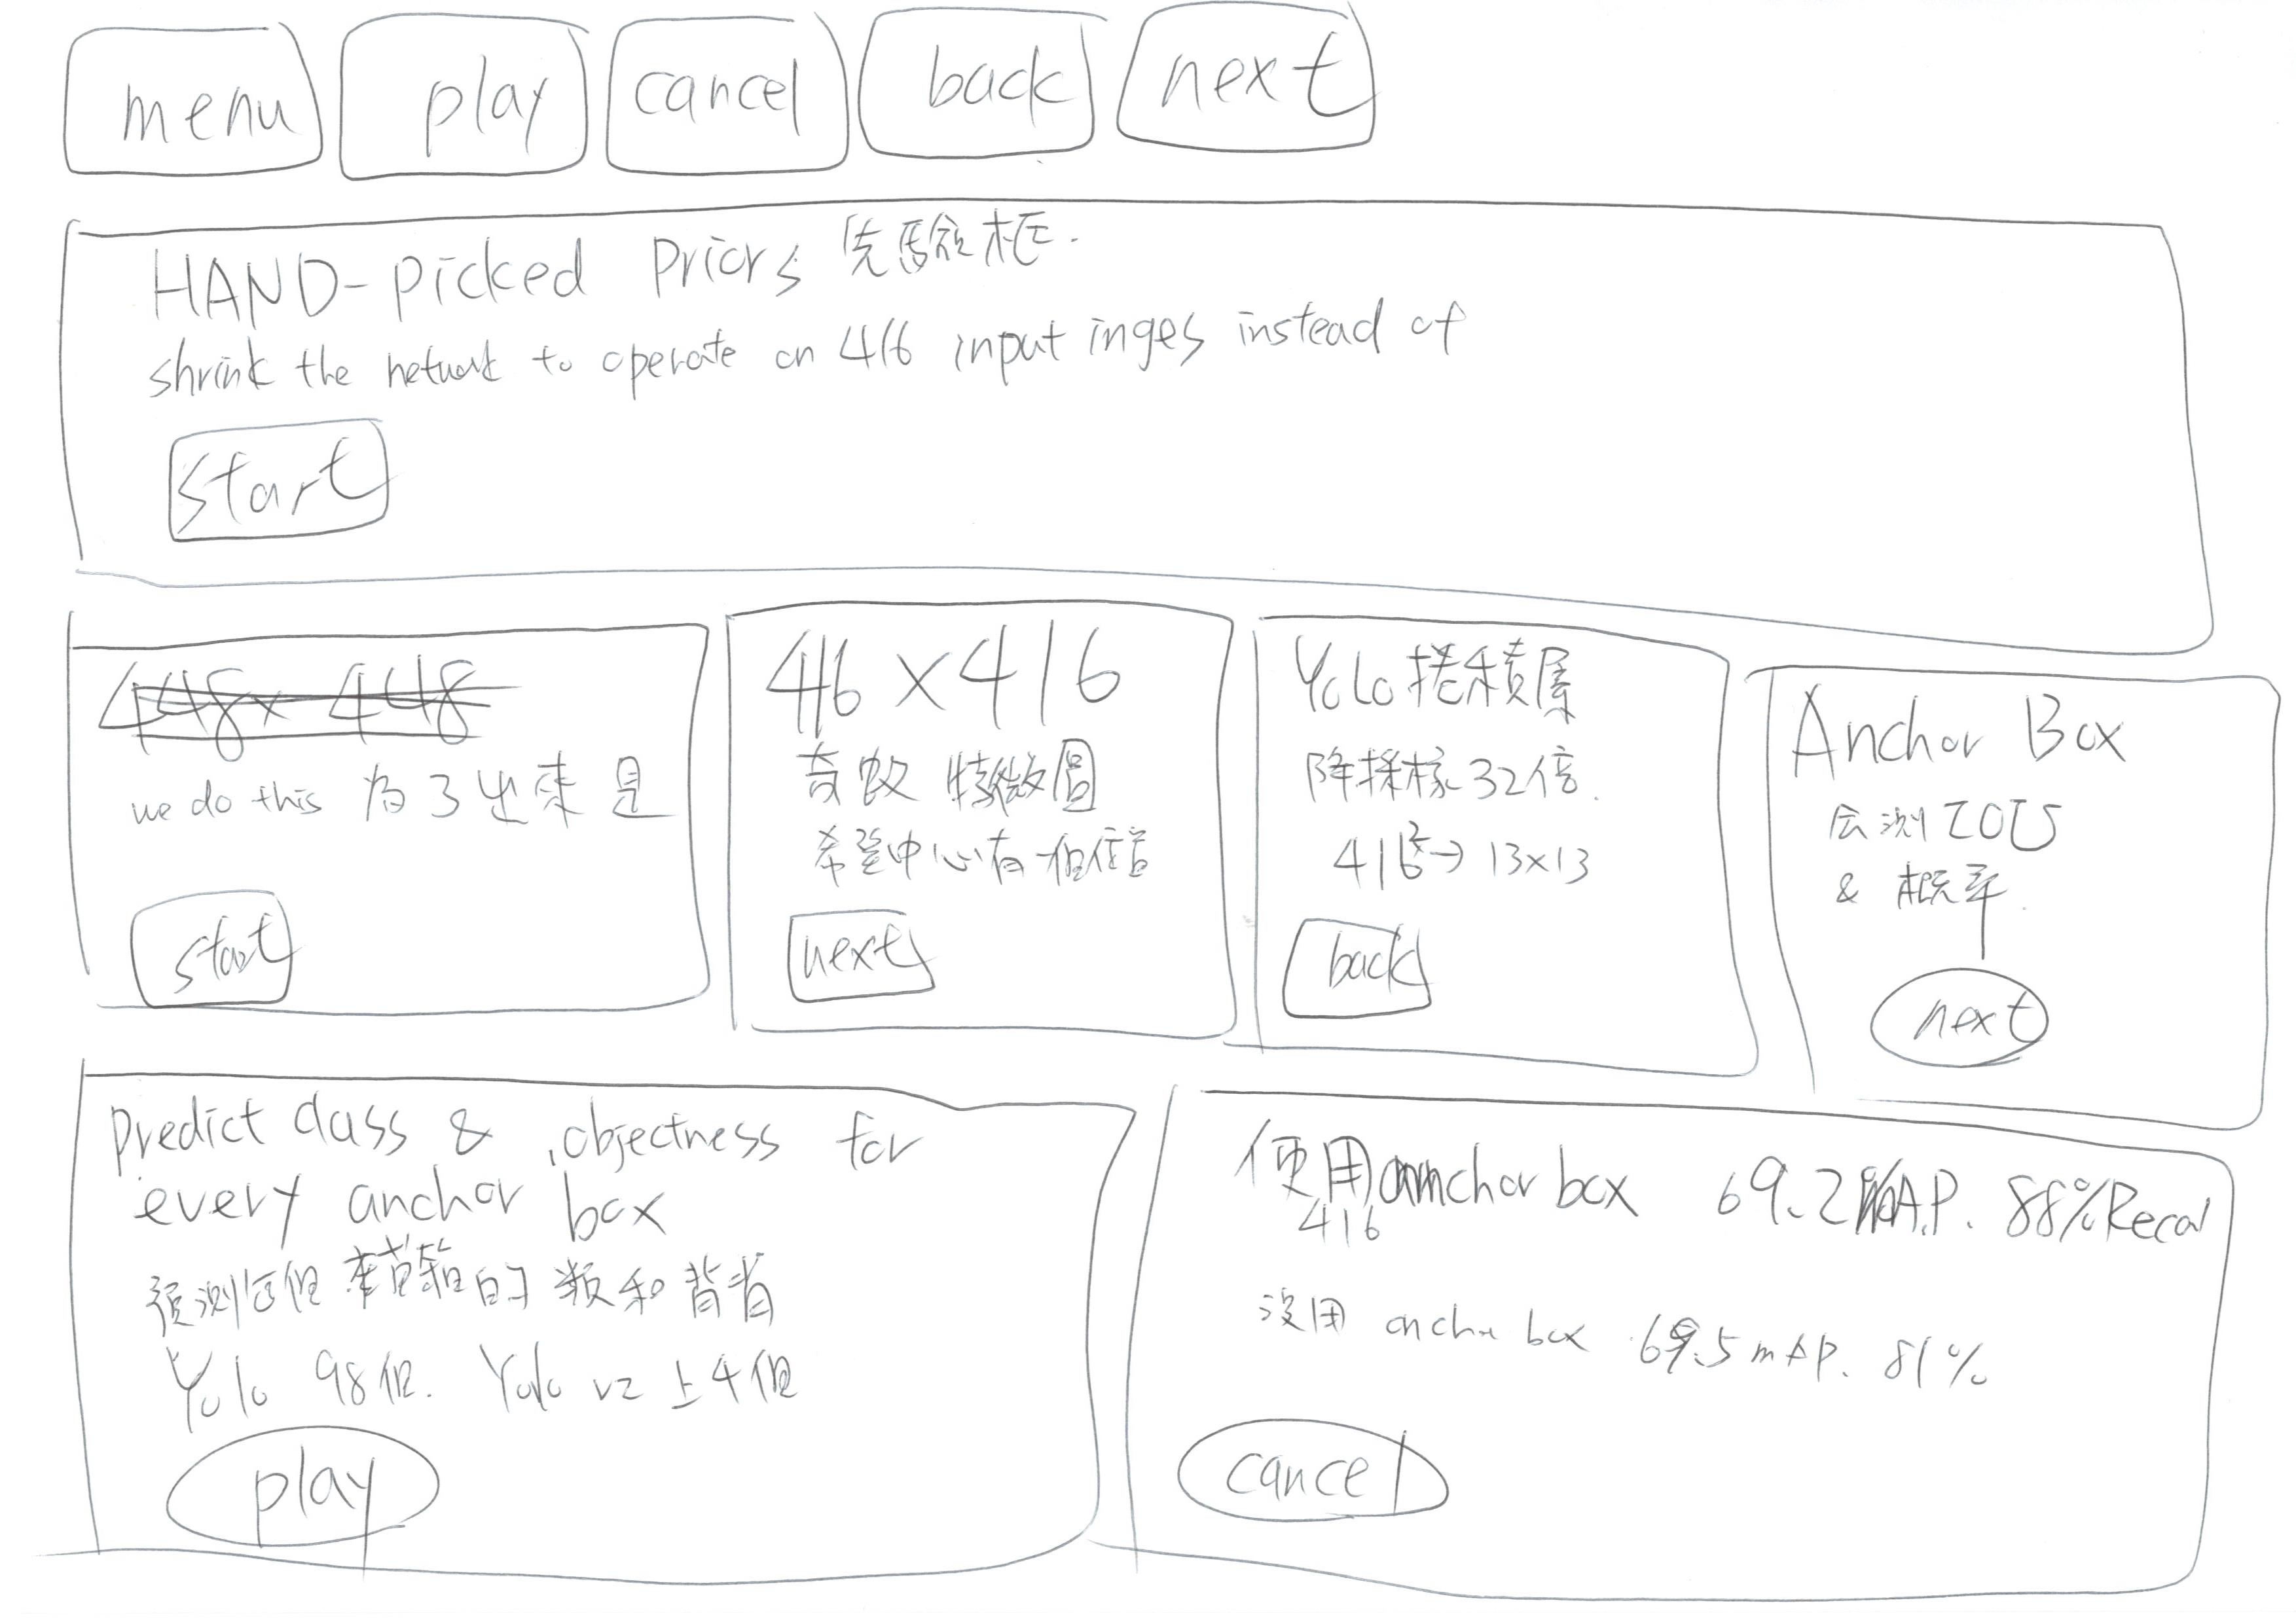 menu play cancel back next
HAND-picked Priors 先驗框.
shrink the network to operate on 416 input inges instead of
start
448x 448
we do this 為了出來 是
start
416 x 416
奇數 特徵圖
希望中心有一個位置
next
YOLO 捲積層
降採樣 32倍.
416²→ 13x13
back
Anchor Box
会測 IOU
& 概率
next
predict class & objectness for
every anchor box
預測每個 的 類和背省
Yolo 98個. Yolo v2 上千個
play
使用 anchor box 69.2 mA.P. 88% Recal
416
沒用 anchor box 69.5 mAP. 81%
cancel